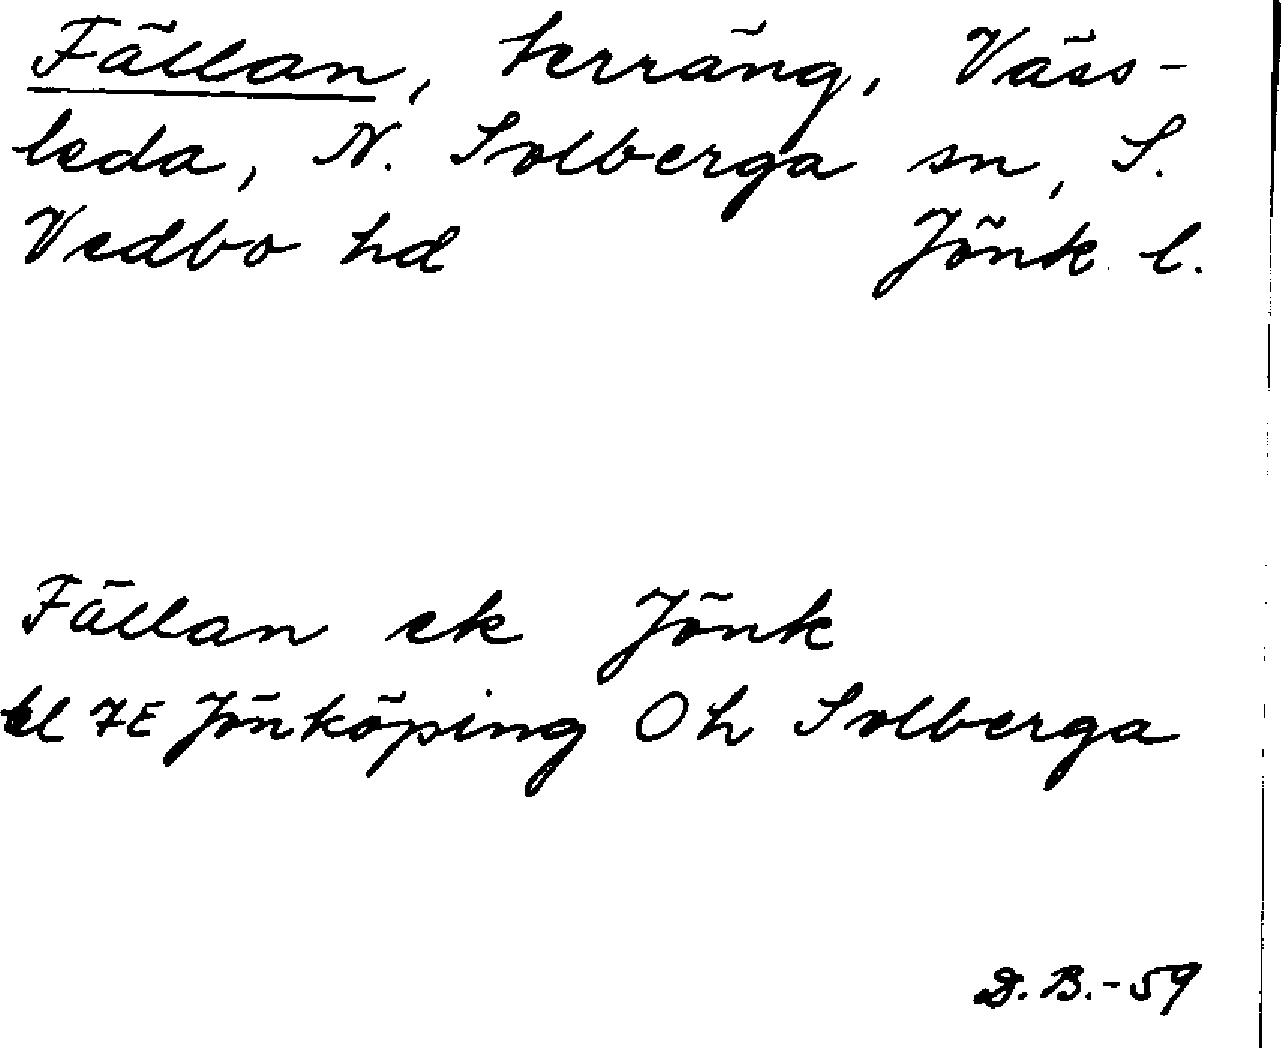 Fällan, terräng, Väss-
leda, N. Solberga sn, S.
Vedbo hd Jönk. l.
Fällan ek Jönk
bl 7E Jönköping Oh Solberga
D.B.-59